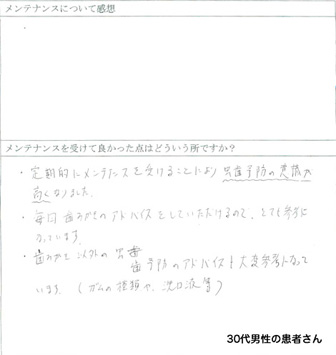 メンテナンスについて感想
メンテナンスを受けて良かった点はどういう所ですか？
・定期的にメンテナンスを受けることにより虫歯予防の意識が
高くなりました。
・毎回歯みがきのアドバイスをしていただけるので、とても参考に
なっています。
・歯みがき以外の虫歯
歯予防のアドバイスも大変参考になって
います。（ガムの種類や、洗口液等）
30代男性の患者さん